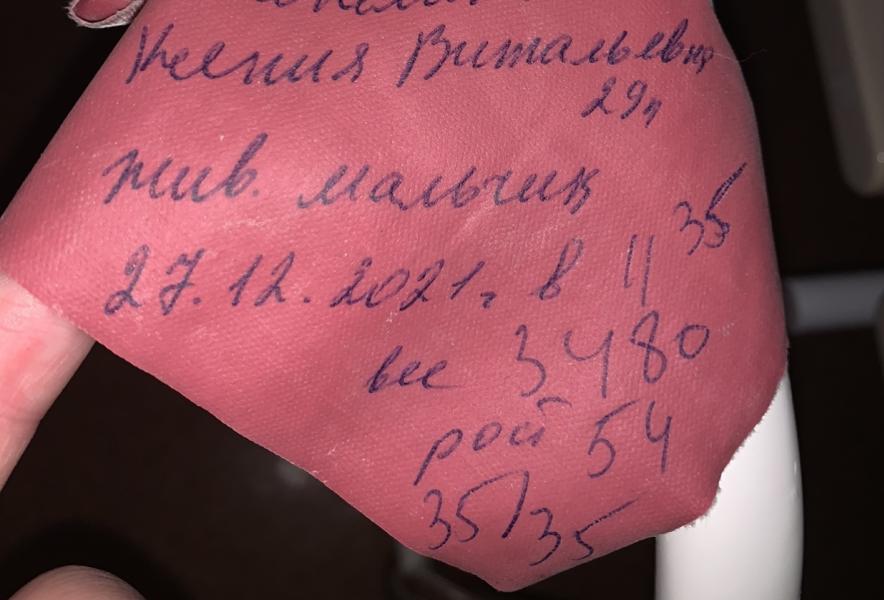 Ксения Витальевна
29л
жив. мальчик
27.12.2021г. в 11 35
вес 3480
рост 54
35/35